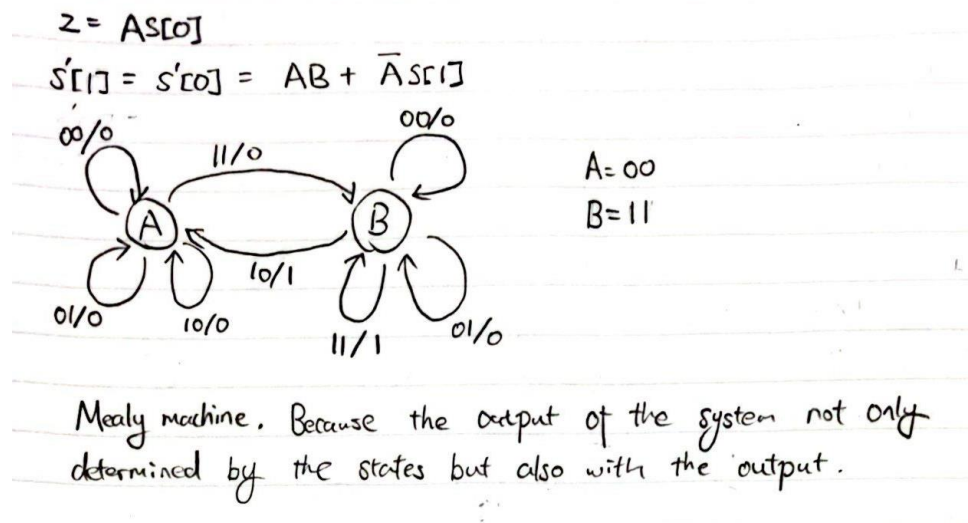 z = AS[0]
S'[1] = S'[0] = AB + A̅S[1]
00/0
00/0
11/0
A = 00
A
B
B = 11
10/1
01/0
10/0
11/1
01/0
Mealy machine. Because the output of the system not only
determined by the states but also with the output.